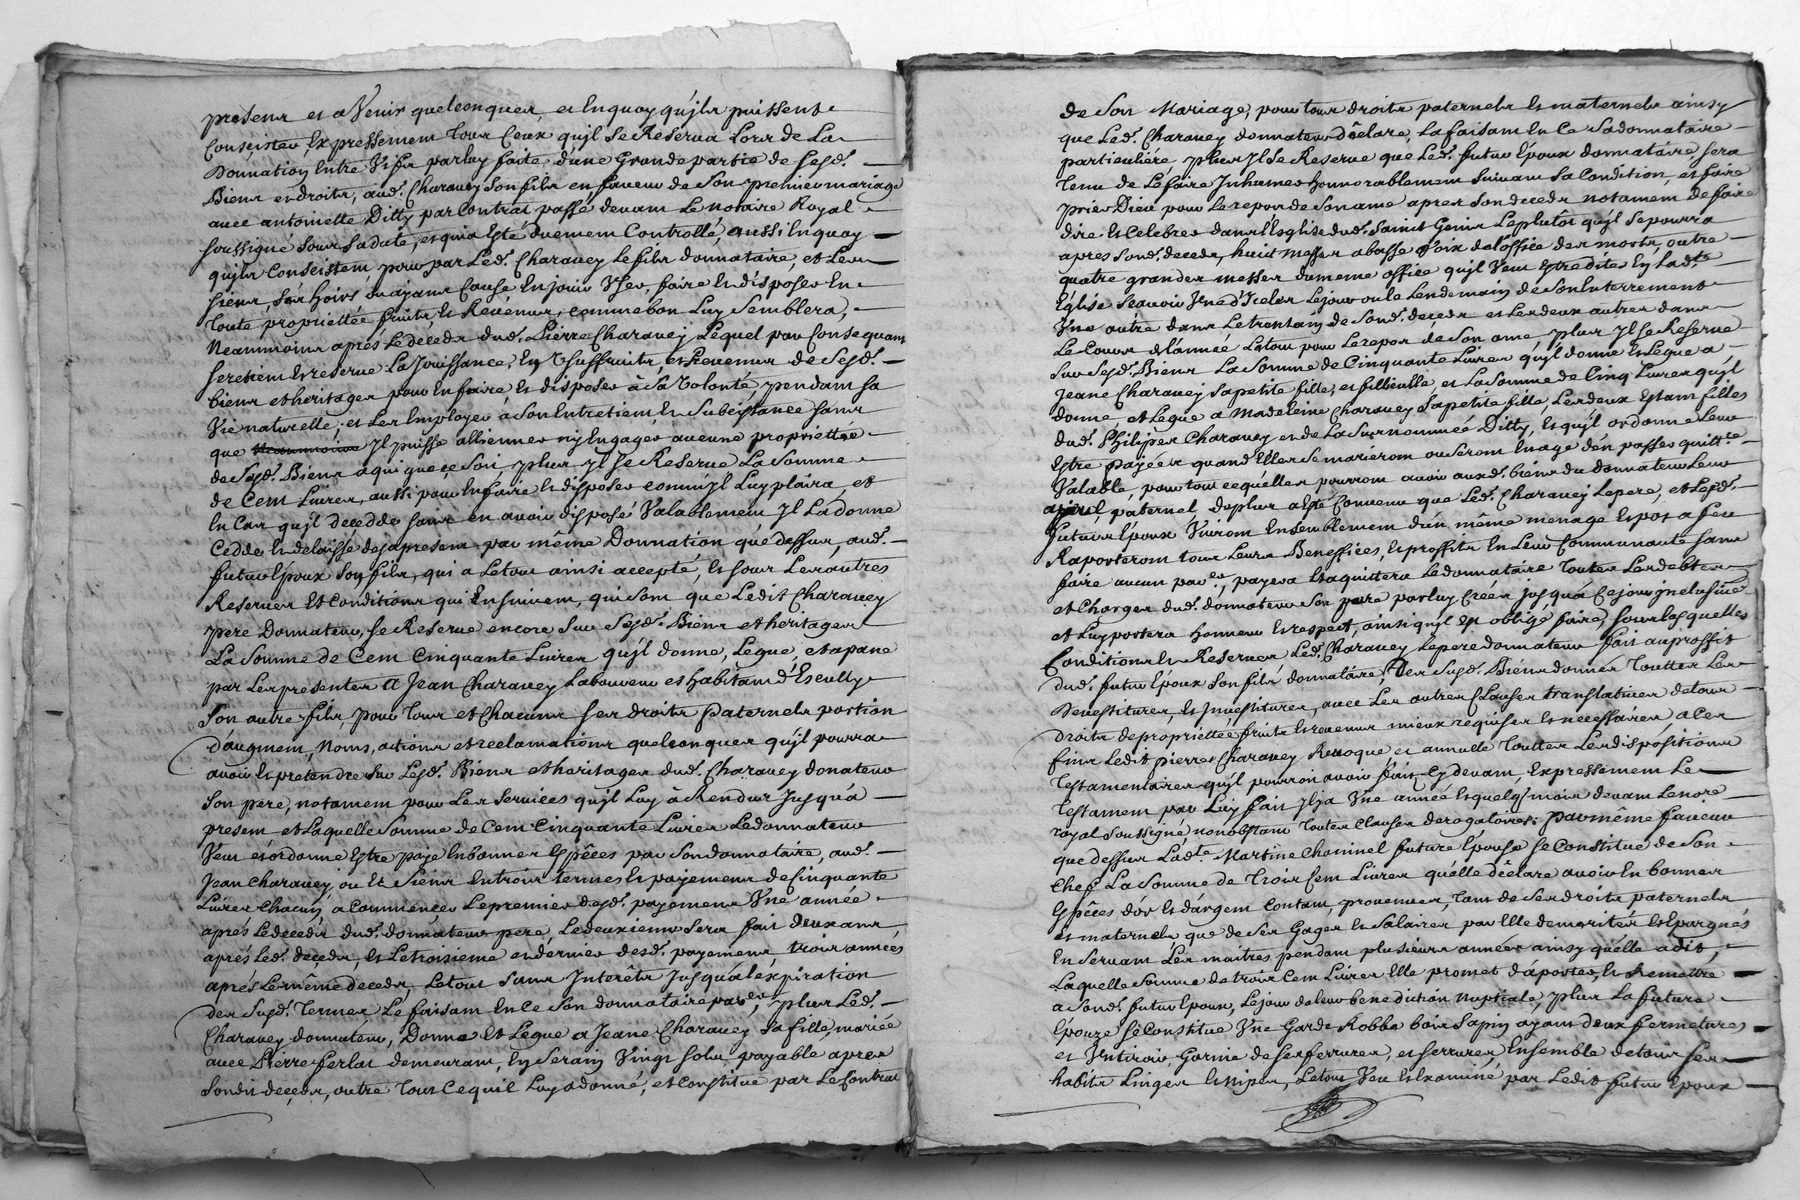 presens et a Venir quelconques, et En quoy qu'jls puissent
Conseister, Expressement Tous Ceux qu'jl Se Reserva Lors de La
Donnation Entre Vifs par luy faite d'une Grande partie de Sesd.
Biens et droits, aud. Charavey Son fils en faveur de Son premier mariage
avec antoinette Ditty par Contrat passé devant Le notaire Royal
soussigné Sous Sa datte, et qui a Esté duement Controllé, aussi En quoy
qu'jls Conseistent, pour par Led. Charavey Le fils donnataire, et Les
siens, Ses hoirs ou ayans Cause En jouir Vser, faire et disposer En
Toute proprietteé fruits et Revenus, comme bon Luy Semblera,
Neanmoins aprés Le décéds dud. Pierre Charavey Lequel par Consequant
se retient et reserve La Jouissance, En Vsuffruits et Revenus de Sesd.
biens et heritages pour En faire et disposer à Sa Volonté, pendant sa
Vie naturelle, et Les Employer à Son Entretient et Subcistance sans
que Neanmoins Jl puisse alliennes ny Engager aucune proprietteé
de Sesd. Biens a qui que ce Soit, plus Jl Se Reserve La Somme
de Cent Livres, aussi pour En faire et disposer comm'jl Luy plaira, et
En Cas qu'jl decedde sans en avoir disposé Valablement Jl La donne
Cedde et delaisse des apresent par même Donnation que dessus, aud.
futur Epoux Son fils, qui a Letout ainsi accepté, et sous Les autres
Reserves et Conditions qui Ensuivent, qui Sont que Ledit Charavey
pere Donnateur, Se Reserve encore Sur Sesd. Biens et heritages
La Somme de Cent Cinquante Livres qu'jl donne, Legue, et apane
par Les presentes A Jean Charavey Laboureur et Habitant d'Escully
Son autre fils, pour Tous et Chacuns Ses droits Paternels portion
d'augment, Noms, actions et reclamations quelconques qu'jl pourra
avoir et pretendre Sur Lesd. Biens et heritages dud. Charavey donateur
Son pere, notament pour Les Services qu'jl Luy à Rendus Jusqu'a
present et Laquelle Somme de Cent Cinquante Livres Le donnateur
Veut et ordonne Estre paye En bonnes Espêces par Son donnataire, aud.
Jean Charavey ou Es Siens En trois termes et payements de Cinquante
Livres Chacun, a Commencer Le premier desd. payements Vne année
aprés Le decéds dud. donnateur pere, Le deuxieme Sera fait deux ans
aprés Led. decéds, et Le troisieme et dérnier desd. payements, trois années
aprés Le même deceds, Letout Sans Interêts Jusqu'a L'expiration
des Susd. Termes Le faisant En Ce Son donnataire par.er, plus Led.
Charavey donnateur, Donne Et Legue a Jeane Charavey Sa fille, mariée
avec Pierre ferlat demeurant, En Serain Vingt Sols, payable apres
Sondit decéds, outre Tout Ce quil Luy a donné, et Constitué par Le Contrat
de Son Mariage, pour tous droits paternels et maternels ainsy
que Led. Charavey donnateur Déclare, La faisant En Ce Sa donnataire
particuliére, plus Jl Se Reserve que Led. futur Epoux donnataire Sera
Tenu de Le faire Jnhumer honnorablement Suivant Sa Condition, et faire
prier Dieu pour Le repos de Son ame apres Son deceds notament de faire
dire et Celebrer dans l'Eglise dud. Sainct Genis Le plutôt qu'jl Se pourra
apres Sond. deceds, huit Messes a basse Voix de l'office des morts, outre
quatre grandes messes du meme office qu'jl Veut Estre dites En Lad.te
Eglise Scavoir Vne d'Jcelles Le jour ou le Lendemain de Son Enterrement
Vne autre dans Le trentain de Sond. deceds et Les deux autres dans
Le Cours de L'année Letout pour Le repos de Son ame, plus Jl Se Reserve
Sur Sesd. Biens La Somme de Cinquante Livres qu'jl donne et Legue a
Jeane Charavey Sa petite fille, et fillieulle, et La Somme de Cinq Livres qu'jl
donne, et Legue a Madeleine Charavey Sa petite fille, Les deux Estant filles
dud. Philipes Charavey et de La Surnommée Ditty, Et qu'jl ordonne Leur
Estre payées quand Elles Se marieront ou Seront En age d'en passer quitt.ce
Valable, pour tout ce qu'elles pourront avoir aux d. biens du donnateur Leur
ayeul paternel, de plus a Esté Convenu que Led. Charavey Le pere, et Lesd.
Futurs Epoux Vivront Ensemblement d'un même menage Et pot a feu
Raporteront tous Leurs Beneffices, Et proffits En Leur Communauté Sans
faire aucun par.er, payera Et aquittera Le donnataire Toutes Les debtes
et Charges dud. donnateur Son pere par luy Créés jusqu'a Ce jour jnclusive
et Luy portera Honneur Et respect, ainsi qu'jl est obligé faire, Sous Lesquelles
Conditions et Reserves Led. Charavey Le pere donnateur fait au proffit
dud. futur Epoux Son fils donnataire, Des Susd. Biens donnés Toutes Les
Devestitures, Et Jnvestitures, avec Les autres Clauses translatives de tous
droits de proprietteé fruits Et revenus mieux requises Et necessaires a Ces
fins Ledit pierre Charavey Revoque et annulle Toutes Les dispositions
Testamentaires qu'jl pourroit avoir fait Cy devant, Expressement Le
Testament par Luy fait Jl ja Vne année Et quelq. mois devant Le no.re
royal soussigné nonobstant Toutes Clauses derogatoires. Par même faveur
que dessus Lad.te Martine Chaninel future Epouse Se Constitue de Son
Chef La Somme de Trois Cent Livres quélle déclare avoir En bonnes
Espêces d'or Et d'argent Contant, provenues, Tant de Ses droits paternels
et maternels que de Ses Gages Et Salaires par Elle demerités Et Epargnés
En Servant Les maitres pendant plusieurs années ainsy quélle a dit,
Laquelle Somme de trois Cent Livres Elle promet d'aporter, Et Remettre
a Sond. futur Epoux, Le jour de leur benediction Nuptiale, plus La future
Epouze Se Constitue Vne Garde Robbe bois Sapin ayant deux fermetures
et Vn tiroir Garnie de Ses ferrures, et serrures, Ensemble de tous Ses
habits Linges Et nipes, Letout Veu Et Examiné par Ledit futur Epoux